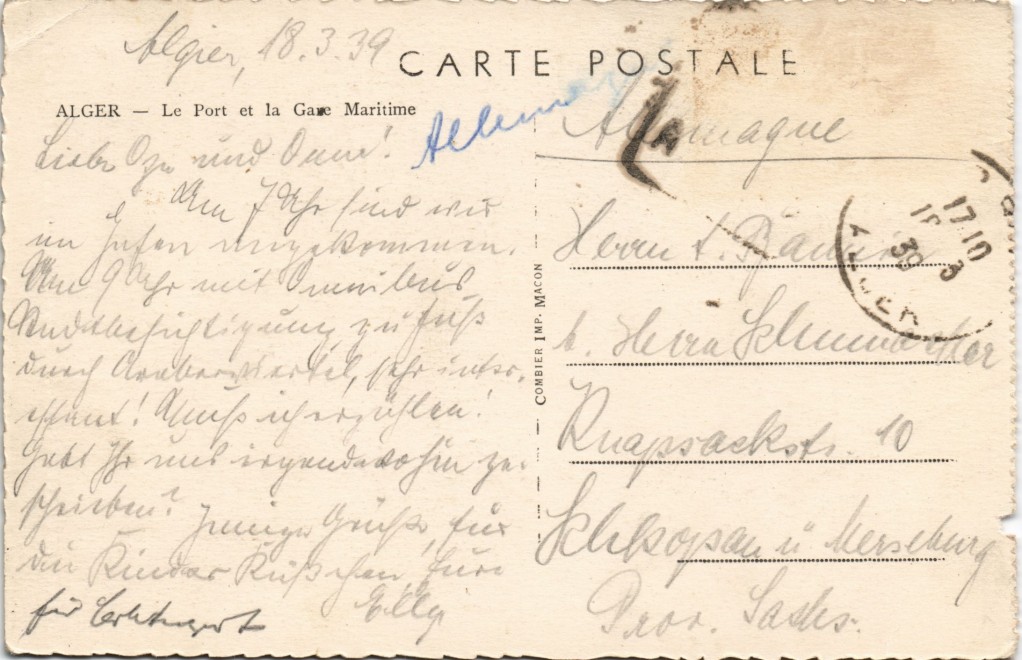 Algier, 18.3.39
CARTE POSTALE
ALGER — Le Port et la Gare Maritime
Allemagne
Allemagne
Liebe und
Am 7 Uhr sind wir
im Hafen angekommen.
Um 9 Uhr mit Omnibus
Stadtbesichtigung, zu Fuß
durch Araberviertel, sehr inter-
essant! Muß ich erzählen!
Habt Ihr uns irgendwohin ge-
schrieben?
Innige Grüße, für
die Kinder Küßchen, Eure
Elly
COMBIER IMP. MACON
Herrn
b. Herrn
Knapsackstr. 10
Schkopau ü Merseburg
Prov. Sachs.
17 10
18 3
39
ALGER